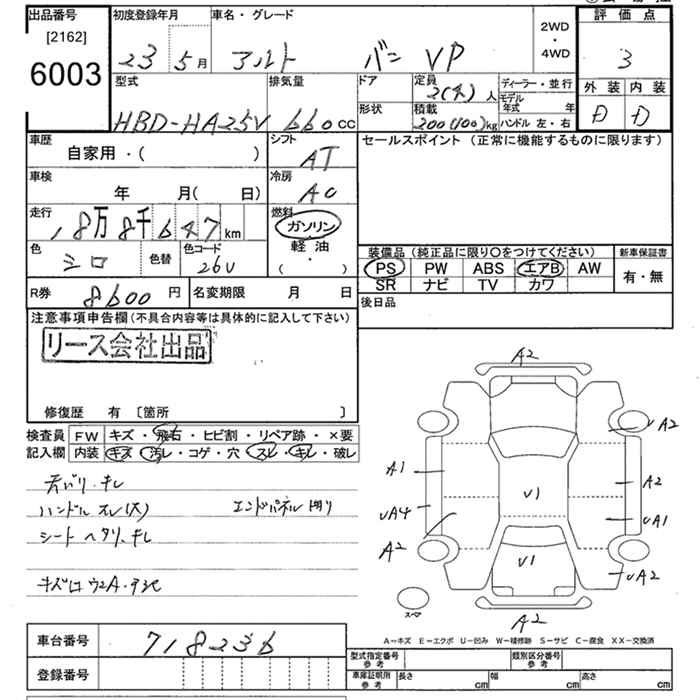 出品番号
[2162]
6003
初度登録年月
23 5月
車名・グレード
アルト バン VP
2WD
・
4WD
評価点
3
外装 内装
D D
型式
HBD-HA25V
排気量
660cc
ドア
形状
定員
2(4)人
積載
200(100)kg
ディーラー・並行
モデル年式 年
ハンドル 左・右
車歴
自家用・( )
シフト
AT
セールスポイント(正常に機能するものに限ります)
車検
年 月( 日)
冷房
AC
走行
18万8千647km
燃料
ガソリン
軽油
( ・ )
色
シロ
色替
色コード
26U
装備品(純正品に限り○をつけてください)
新車保証書
PS PW ABS エアB AW
SR ナビ TV カワ
有・無
R券
8600円
名変期限 月 日
後日品
注意事項申告欄(不具合内容等は具体的に記入して下さい)
リース会社出品
修復歴 有 〔箇所 〕
検査員
記入欄
FW キズ・飛石・ヒビ割・リペア跡・×要
内装 キズ・汚レ・コゲ・穴・スレ・キレ・破レ
ハンドル スレ(大) エンドパネル
シート ヘタリ、キレ
A2
UA2
A1
A2
UA4
U1
UA1
A2
U1
UA2
スペア
A2
A=キズ E=エクボ U=凹み W=補修跡 S=サビ C=腐食 XX=交換済
車台番号
718236
登録番号
型式指定番号
参考
類別区分番号
参考
車庫証明用
参考
長さ cm
幅 cm
高さ cm